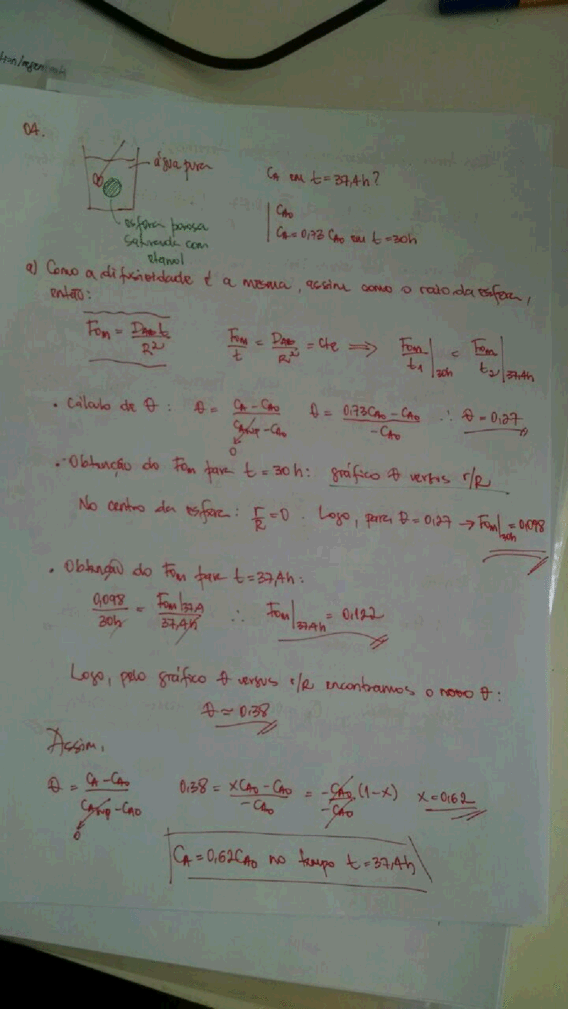 04.
água pura
CA em t = 37,4h?
CA0
CA = 0,73 CA0 em t = 30h
esfera porosa
saturada com
etanol
a) Como a difusividade é a mesma, assim como o raio da esfera,
então:
Fom = DAB t / R² Fom/t = DAB/R² = cte ⟹ Fom/t1 |30h = Fom/t2 |37,4h
• Cálculo de θ: θ = (CA - CA0)/(CA∞ - CA0) θ = (0,73CA0 - CA0)/(-CA0) ∴ θ = 0,27
0
• Obtenção do Fom para t = 30h: gráfico θ versus r/R
No centro da esfera: r/R = 0. Logo, para θ = 0,27 → Fom|30h = 0,098
• Obtenção do Fom para t = 37,4h:
0,098/30h = Fom|37,4/37,4h ∴ Fom|37,4h = 0,122
Logo, pelo gráfico θ versus r/R encontramos o novo θ:
θ = 0,38
Assim,
θ = (CA - CA0)/(CA∞ - CA0) 0,38 = (xCA0 - CA0)/(-CA0) = -CA0 (1-x)/(-CA0) x = 0,62
0
CA = 0,62CA0 no tempo t = 37,4h